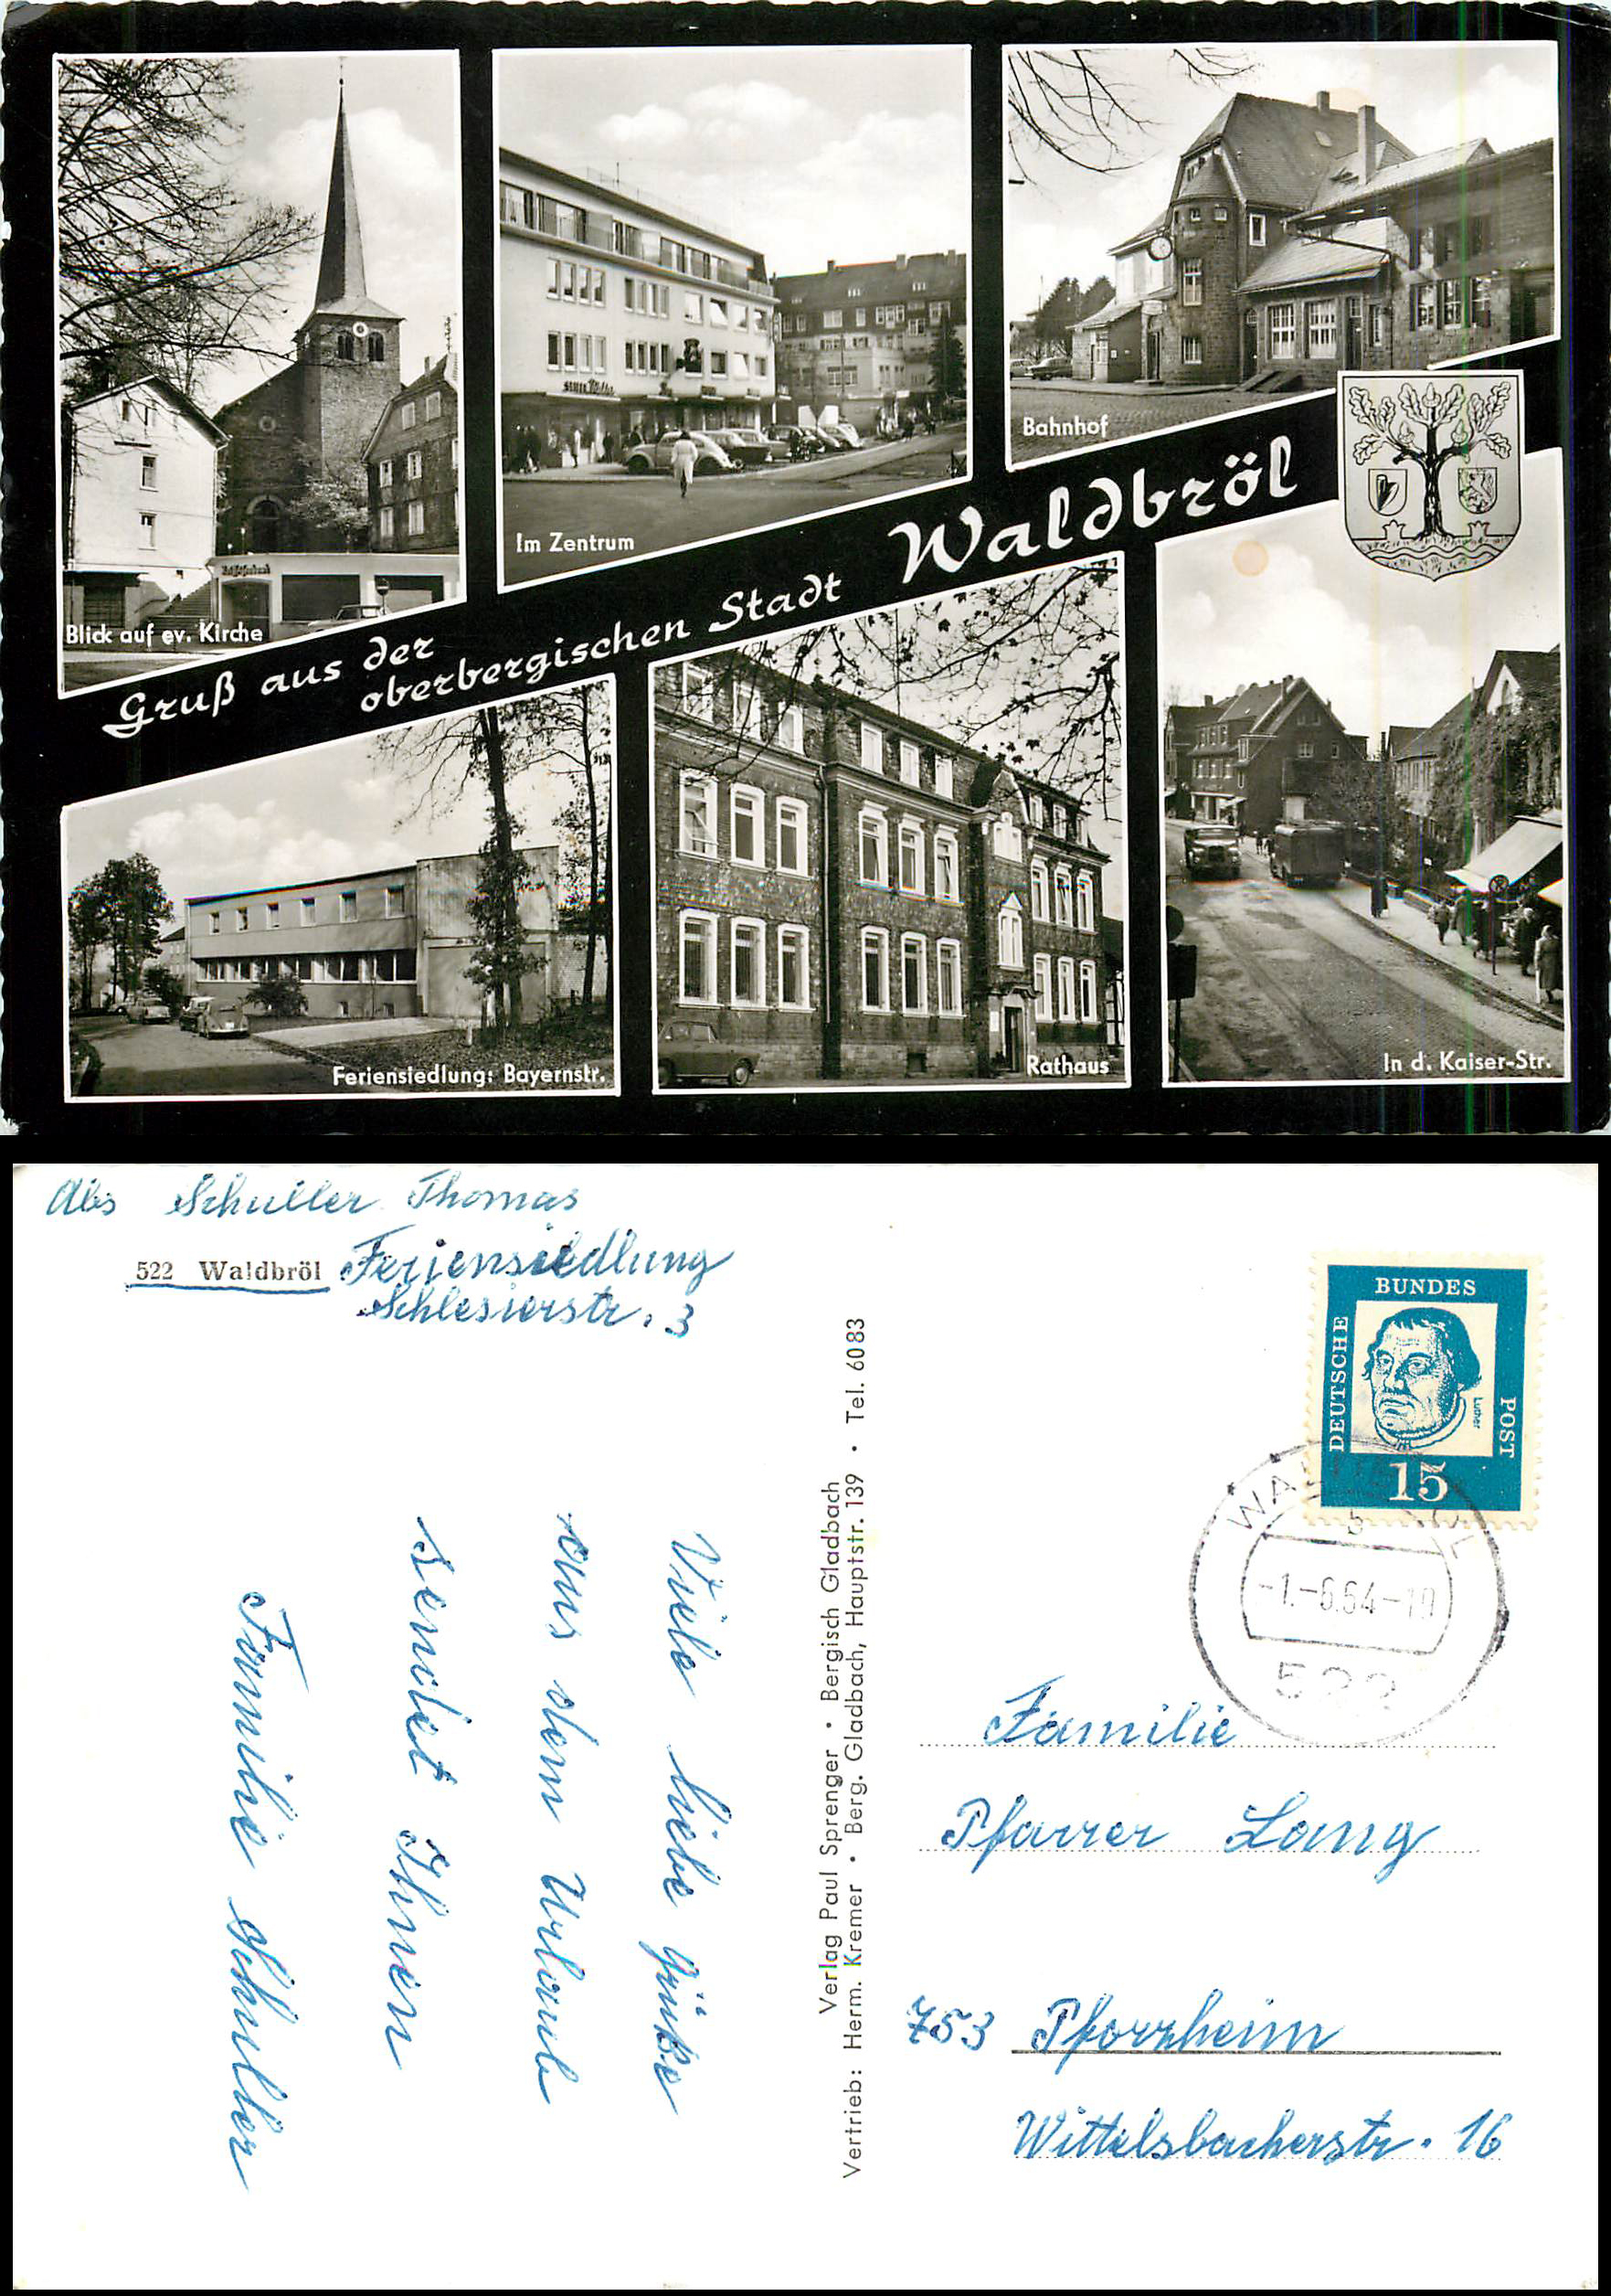 Blick auf ev. Kirche
Im Zentrum
Bahnhof
Gruß aus der
oberbergischen Stadt Waldbröl
Feriensiedlung: Bayernstr.
Rathaus
In d. Kaiser-Str.
Abs Schuller Thomas
522 Waldbröl Feriensiedlung
Schlesierstr. 3
Viele liebe Grüße
aus dem Urlaub
sendet Ihnen
Familie Schuller
Verlag Paul Sprenger • Bergisch Gladbach
Vertrieb: Herm. Kremer • Berg. Gladbach, Hauptstr. 139 • Tel. 6083
DEUTSCHE
BUNDES
POST
Luther
15
-1.-6.64-10
522
Familie
Pfarrer Lang
753 Pforzheim
Wittelsbacherstr. 16